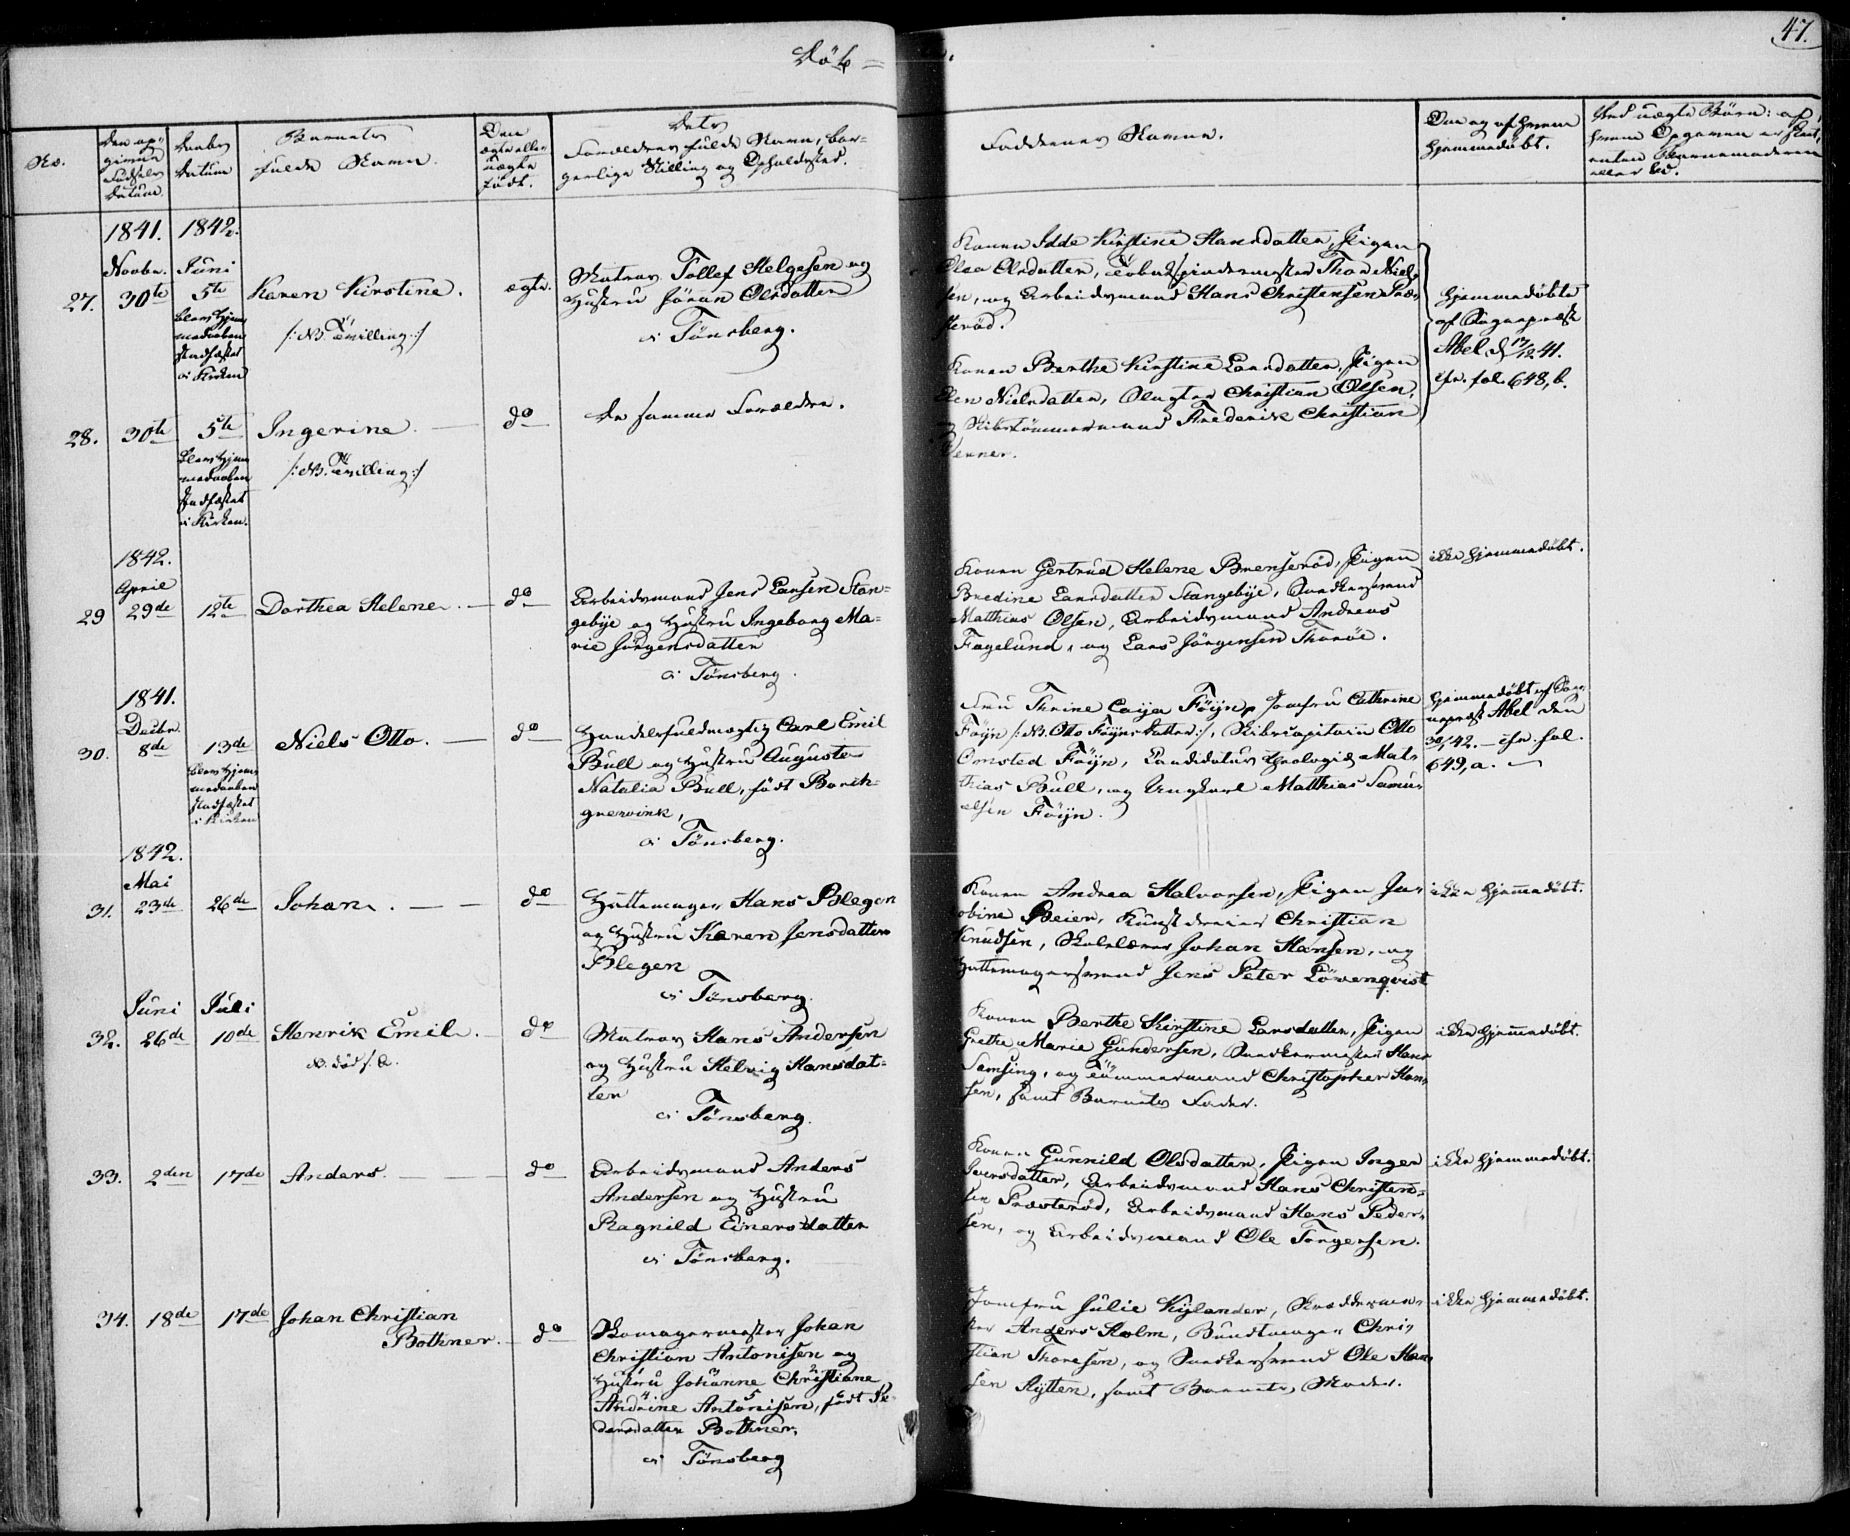 Døb =
47.
No.
Den op=
givne
Fødsels
Datum.
Daabs
Datum
Barnets
fulde Navn.
Om
ægte eller
uægte
født.
Dets
Forældres fulde Navn, bor-
gerlige Stilling og Opholdssted.
Faddernes Navne.
Om og af hvem
hjemmedøbt.
Ved uægte Børn: af
hvem Opgaven er skeet,
enten Barnemoderen
eller Ed.
1841. 1842.
Novbr. Juni
27. 30te 5te Karen Kirstine.
/: NB. Tvilling :/
Blev Hjem-
medaaben
stadfæstet
i Kirken
ægte.
Matros Tollef Helgesen og
Hustru Jøran Olsdatter
i Tønsberg.
Konen Idde Kirstine Hansdatter, Pigen
Olea Olsdatter, Tobakspindermester Thor Niel-
sen, og Arbeidsmand Hans Christensen Præ-
sterød.
Hjemmedøbte
af Sogneprest
Abel d. 17/12 41.
cfr. fol. 648, b.
28. 30te 5te Ingerine. —
/: NB. Tvilling :/
Blev Hjem-
medaaben
stadfæstet
i Kirken.
do
De samme Forældre.
Konen Berthe Kirstine Larsdatter, Pigen
Elen Nielsdatter, Slagter Christian Olsen,
og Skibstømmermand Frederik Christian
Wenner.
1842.
April
29 29de 12te Dorthea Helene. — do
Arbeidsmand Jens Larsen Stan-
gebÿe og Hustru Ingeborg Ma-
rie Jørgensdatter
i Tønsberg.
Konen Gertrud Helene Brenserød, Pigen
Bredine Larsdatter Stangebÿe, Snedkersvend
Matthias Olsen, Arbeidsmand Andreas
Fagelund, og Lars Jørgensen Thorøe.
ikke hjemmedøbt.
1841.
Decbr.
30. 8de 13de Niels Otto. — do
Blev Hjem-
medaaben
stadfæstet
i Kirken
Handelsfuldmægtig Carl Emil
Bull og Hustru Auguste
Natalia Bull, født Borch-
grevink,
i Tønsberg.
Fru Thrine Caija Føÿn, Jomfru Cathrine
Føÿn /: NB. Otto Føÿns Datter :/, Skibscapitain Otto
Omsted Føÿn, Candidatus theologiæ Mat-
thias Bull, og Ungkarl Matthias Samu-
elsen Føÿn.
Hjemmedøbt af Sog-
neprest Abel den
30/1 42. — cfr. fol.
649, a. —
1842.
Mai
31. 23de 26de Johan. — — do
Hattemager Hans Blegen
og Hustru Karen Jensdatter
Blegen
i Tønsberg.
Konen Andrea Halvorsen, Pigen Ja-
cobine Beier, Kunstdreier Christian
Knudsen, Skolelærer Johan Hansen, og
Hattemagersvend Jens Peter Lövenqvist
ikke hjemmedøbt.
Juni Juli
32. 26de 10de Henrik Emil. — do
Matros Hans Andersen
og Hustru Helvig Hansdat-
ter
i Tønsberg.
Konen Berthe Kirstine Larsdatter, Pigen
Grethe Marie Gundersen, Snedkermester Hans
Samsing, og Tömmermand Christopher Han-
sen, samt Barnets Fader.
ikke hjemmedøbt.
33. 2den 17de Anders. — — — do
Arbeidsmand Anders
Andersen og Hustru
Ragnild Einersdatter
i Tønsberg.
Konen Gunnild Olsdatter, Pigen Inger
Iversdatter, Arbeidsmand Hans Christen-
sen Præsterød, Arbeidsmand Hans Peder-
sen, og Arbeidsmand Ole Torgersen.
ikke hjemmedøbt.
34. 18de 17de Johan Christian
Bothner. — do
Skomagermester Johan
Christian Antonisen og
Hustru Johanne Christiane
Andrine Antonisen, født Pe-
dersdatter Bothner,
i Tønsberg
Jomfru Julie Kÿlander, Skredderme-
ster Anders Holm, Bundtmager Chri-
stian Thoresen, og Snedkersvend Ole Han-
sen Rÿtter, samt Barnets Moder.
ikke hjemmedøbt.